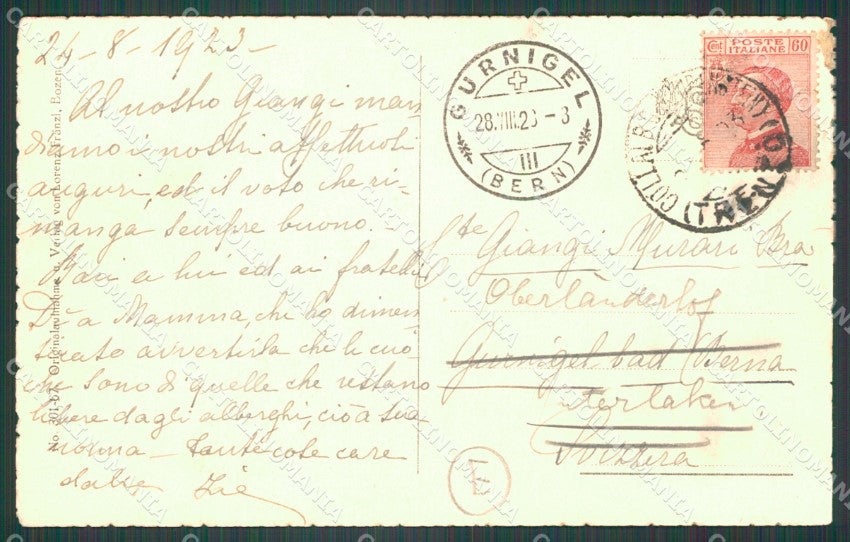 24-8-1923-
Al nostro Giangi man-
diamo i nostri affettuosi
auguri, ed il voto che ri-
manga sempre buono.
Baci a lui ed ai fratelli
Di a Mamma, che ho dimen
ticato avvertirla che le cuo
che sono di quelle che restano
libere dagli alberghi, ciò a sua
norma - Tante cose care
dalle Zie
No. Originalaufnahme u. Verlag von Lorenz Fränzl, Bozen
GURNIGEL
28.VIII.23 - 8
III
(BERN)
POSTE
ITALIANE
Cent 60
(TRENTO)
Cte Giangi Murari Bra
Oberländerhof
Gurnigelbad Berna
Interlaken
Svizzera
CARTOLINOMANIA